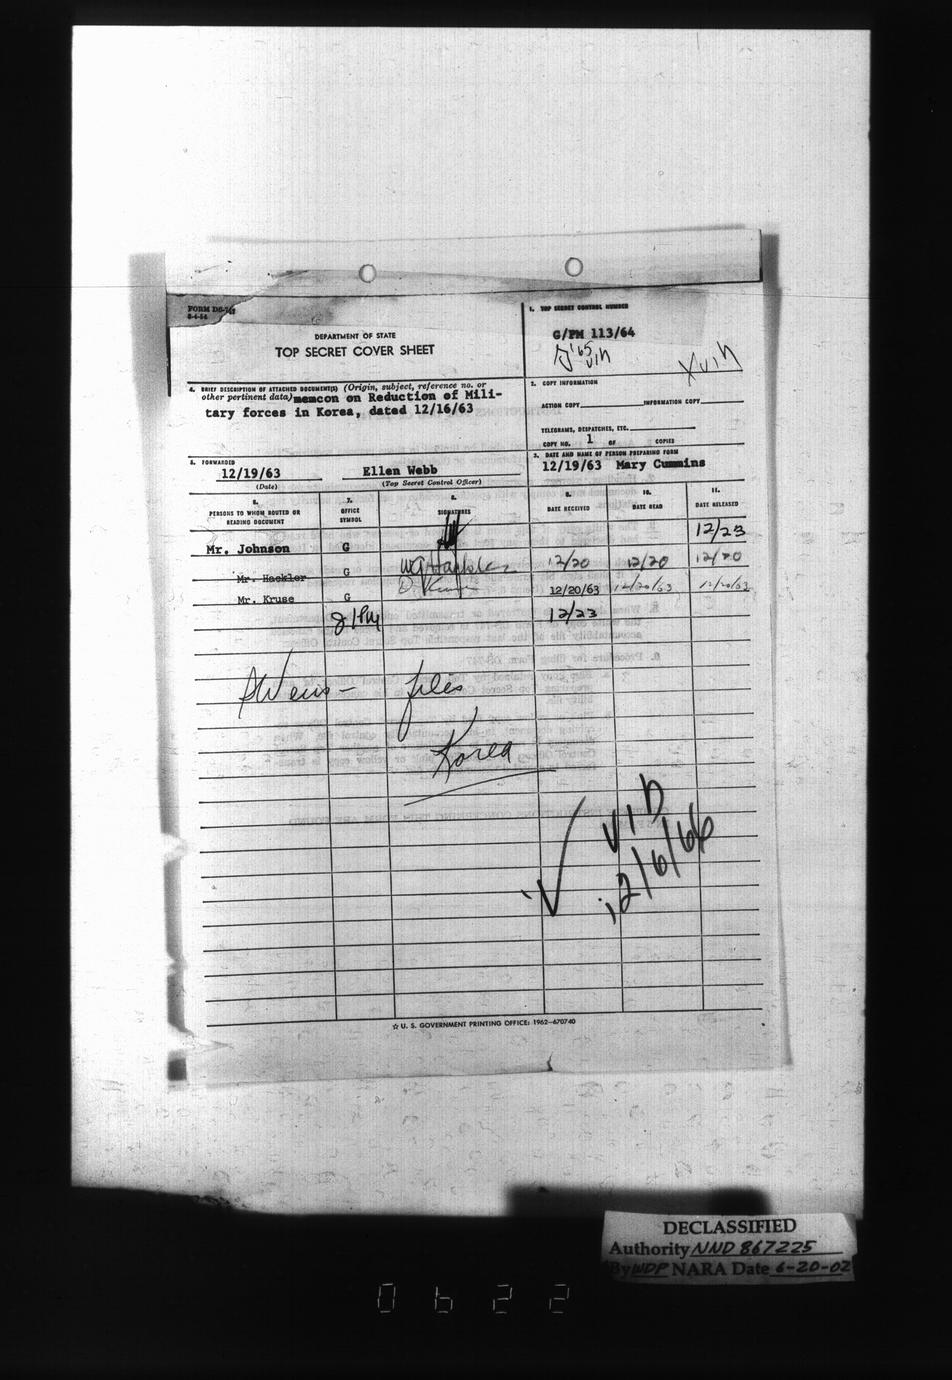 FORM DS-747
8-4-54
DEPARTMENT OF STATE
TOP SECRET COVER SHEET
1. TOP SECRET CONTROL NUMBER
G/PM 113/64
4. BRIEF DESCRIPTION OF ATTACHED DOCUMENT(S) (Origin, subject, reference no. or
other pertinent data) memcon on Reduction of Mili-
tary forces in Korea, dated 12/16/63
2. COPY INFORMATION
ACTION COPY INFORMATION COPY
TELEGRAMS, DESPATCHES, ETC.
COPY NO. 1 OF COPIES
5. FORWARDED
12/19/63 Ellen Webb
(Date) (Top Secret Control Officer)
3. DATE AND NAME OF PERSON PREPARING FORM
12/19/63 Mary Cummins
6. PERSONS TO WHOM ROUTED OR READING DOCUMENT 7. OFFICE SYMBOL 8. SIGNATURES 9. DATE RECEIVED 10. DATE READ 11. DATE RELEASED
Mr. Johnson G 12/23
Mr. Hackler G WGHackler 12/20 12/20 12/20
Mr. Kruse G D Kruse 12/20/63 12/20/63 12/20/63
G/PM 12/23
files
Korea
12/6/66
☆ U. S. GOVERNMENT PRINTING OFFICE: 1962—670740
DECLASSIFIED
Authority NND 867225
By WDP NARA Date 6-20-02
0622